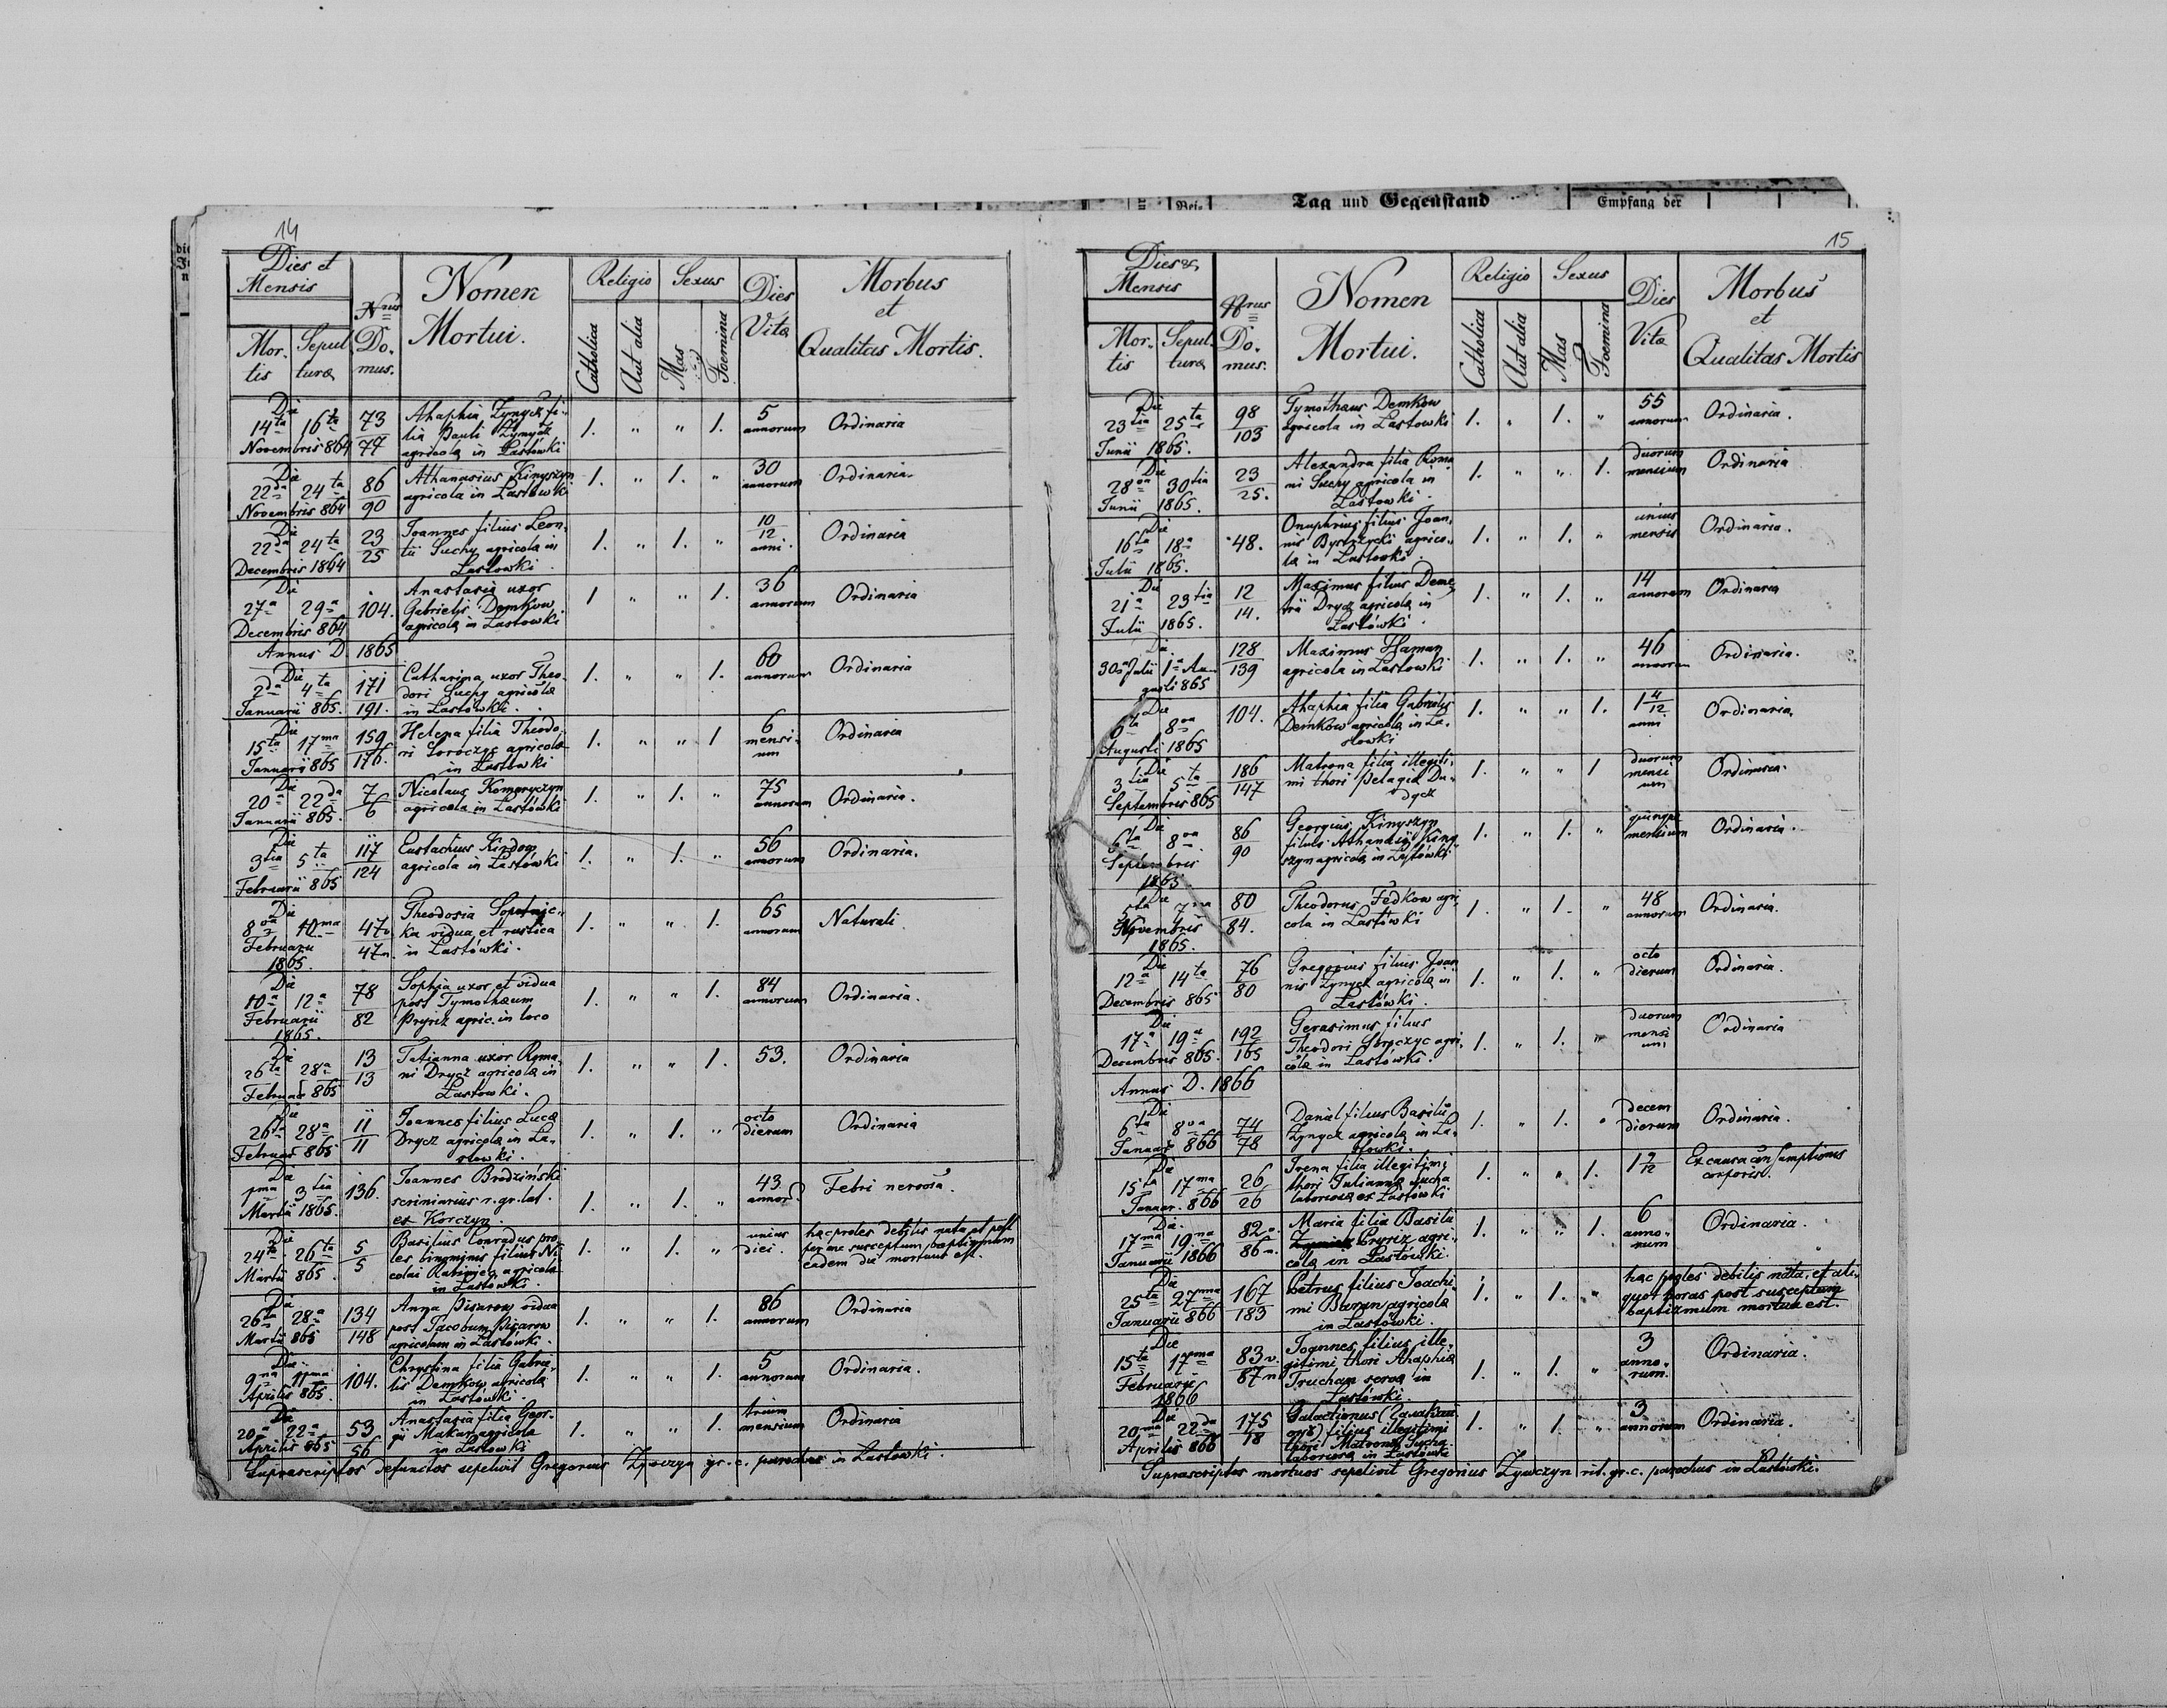 Tag und Gegenstand
Empfang der
14
Dies et Mensis
Mortis Sepulturæ
Nrus Domus.
Nomen Mortui.
Religio
Catholica Aut alia
Sexus
Mas Foemina
Dies Vitæ
Morbus et Qualitas Mortis.
Die 14ta 16ta Novembris 864 73/77 Ahaphia Zynycz fi-
lia Pauli Zynycz
agricolæ in Łastówki 1. " " 1. 5 annorum Ordinaria
Die 22da 24ta Novembris 864 86/90 Athanasius Kinyszyn
agricola in Łastówki 1. " 1. " 30 annorum Ordinaria
Die 22da 24ta Decembris 1864 23/25 Joannes filius Leon-
tii Suchy agricola in
Łastowki 1. " 1. " 10/12 anni. Ordinaria
Die 27a 29a Decembris 864 104. Anastasia uxor
Gabrielis Demkow
agricolæ in Łastowki 1 " " 1. 36 annorum Ordinaria
Annus D. 1865
Die 2da 4ta Januarii 865. 171/191. Catharina uxor Theo-
dori Suchy agricolæ
in Łastówki. 1. " " 1. 60 annorum Ordinaria
Die 15ta 17ma Januarii 865 159/176. Helena filia Theodo-
ri Soroczyc agricolæ
in Łastówki 1. " " 1 6 mensi-
um Ordinaria
Die 20a 22da Januarii 865. 7/6 Nicolaus Komaryczyn
agricola in Łastówki 1. " 1. " 75 annorum Ordinaria.
Die 3tia 5ta Februarii 865 117/124 Eustachius Kindow
agricola in Łastówki 1. " 1. " 56 annorum Ordinaria.
Die 8va 10ma Februarii
1865. 47v/47n. Theodosia
ka vidua et rustica
in Łastówki. 1. " " 1. 65 annorum Naturali
Die 10a 12a Februarii
1865. 78/82 Sophia uxor et vidua
post Tymotheum
Pryriz agric. in loco 1. " " 1. 84 annorum Ordinaria.
Die 26ta 28a Februar 865 13/13 Tatianna uxor Roma-
ni Drycz agricolæ in
Łastowki. 1. " " 1. 53. Ordinaria
Die 26ta 28a Februar 865 11/11 Joannes filius Lucæ
Drycz agricolæ in Ła-
stowki. 1. " 1. " octo dierum Ordinaria
Die 1ma 3tia Martii 1865. 136. Joannes Brodziński
scriniarius r. gr. lat.
ex Korczyn. 1. " 1. " 43 annor. Febri nervosa.
Die 24ta 26ta Martii 865. 5/5 Basilius Conradus pro-
les binyminus filius Ni-
colai agricolæ
in Łastówki. 1. " 1. " unius diei. hæc proles debilis nata et post
per me susceptum baptismum
eadem die mortuus est.
Die 26ta 28a Martii 865 134/148 Anna Pisarow vidua
post Jacobum Pisarow
agricolam in Łastówki. 1. " " 1. 86 annorum Ordinaria
Die 9na 11ma Aprilis 865. 104. Chrystina filia Gabrie-
lis Demkow agricolæ
in Łastówki. 1. " " 1. 5 annorum Ordinaria.
Die 20a 22a Aprilis 865 53/56 Anastasia filia Geor-
gii Makar agricolæ
in Łastówki 1. " " 1. trium mensium Ordinaria
Suprascriptos defunctos sepelivit Gregorius gr. c. parochus in Łastówki.
15
Dies & Mensis
Mortis Sepulturæ
Nrus Domus.
Nomen Mortui.
Religio
Catholica Aut alia
Sexus
Mas Foemina
Dies Vitæ
Morbus et Qualitas Mortis
Die 23tia 25ta Junii 1865. 98/103 Tymothæus Demkow
agricola in Łastowki 1. " 1. " 55 annorum Ordinaria.
Die 28va 30tia Junii 1865. 23/25. Alexandra filia Roma
ni Suchy agricola in
Łastowki. 1. " " 1. duorum mensium Ordinaria
Die 16ta 18a Julii 1865. 48. Onuphrius filius Joan-
nis Bystrzycki agrico-
læ in Łastowki. 1. " 1. " unius mensis Ordinaria.
Die 21a 23tia Julii 1865. 12/14. Maximus filius Deme-
trii Drycz agricolæ in
Łastówki. 1. " 1. " 14 annorum Ordinaria
Die 30a Julii 1a Au-
gusti 865 128/139 Maximus Haman
agricola in Łastowki 1. " 1. " 46 annorum Ordinaria.
Die 6ta 8va Augusti 1865 104. Ahaphia filia Gabrielis
Demkow agricolæ in Ła-
stowki 1. " " 1. 1 4/12 anni Ordinaria.
Die 3tia 5ta Septembris 865 186/147 Matrona filia illegiti-
mi thori Pelagiæ Du-
dycz 1. " " 1 duorum mensi
um Ordinaria.
Die 6ta 8va Septembris
1865. 86/90 Georgius Kinyszyn
filius Athanasii Kiny-
szyn agricolæ in Łastówki 1. " 1. " quinque mensium Ordinaria.
Die 5ta 7ma Novembris
1865. 80/84. Theodorus Fedkow agri-
cola in Łastówki 1. " 1. " 48 annorum Ordinaria.
Die 12a 14ta Decembris 865 76/80 Gregorius filius Joan
nis Zynycz agricolæ in
Łastówki. 1. " 1. " octo dierum Ordinaria.
Die 17a 19a Decembris 865. 192/165 Gerasimus filius
Theodori Soroczyc agri-
colæ in Łastówki. 1. " 1. " duorum mensi
um Ordinaria
Annus D. 1866
Die 6ta 8va Januar 866 74/78 Daniel filius Basilii
Zynycz agricolæ in Ła-
stowki. 1. " 1. " decem dierum Ordinaria.
Die 15ta 17ma Januar. 866 26/26 Irena filia illegitimi
thori Juliannæ Sucha
laboriosa ex Łastówki 1. " " 1. 1 9/12 Ex causa consumptionis
corporis.
Die 17ma 19na Januarii 1866 82v./86n. Maria filia Basilii
Pryriz agri-
colæ in Łastówki. 1. " " 1. 6 anno-
rum Ordinaria.
Die 25ta 27ma Januarii 866 167/183 Petrus filius Joachi-
mi Baran agricolæ
in Łastówki. 1. " 1. " hæc proles debilis nata, et ali-
quot horas post susceptum
baptizmum mortua est.
Die 15ta 17ma Februarii
1866 83v./87n Joannes filius ille-
gitimi thori Ahaphiæ
Truchan serva in
Łastówki. 1. " 1. " 3 anno-
rum. Ordinaria.
Die 20ma 22da Aprilis 866 175/18 Galactionus
filius illegitimi
thori Matronæ Sucha
laboriosa in Łastówki 1. " 1. " 3 annorum Ordinaria.
Suprascriptos mortuos sepelivit Gregorius Zywczyn rit. gr. c. parochus in Łastówki.